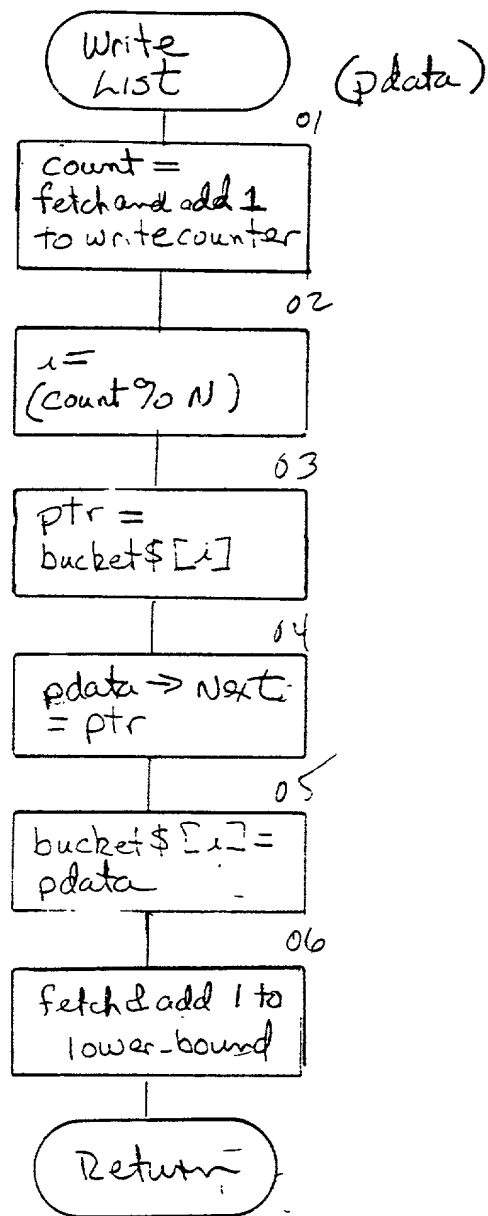 Write
List
(pdata)
01
count =
fetch and add 1
to writecounter
02
i =
(count % N)
03
ptr =
bucket$[i]
04
pdata → Next
= ptr
05
bucket$[i] =
pdata
06
fetch & add 1 to
lower-bound
Return